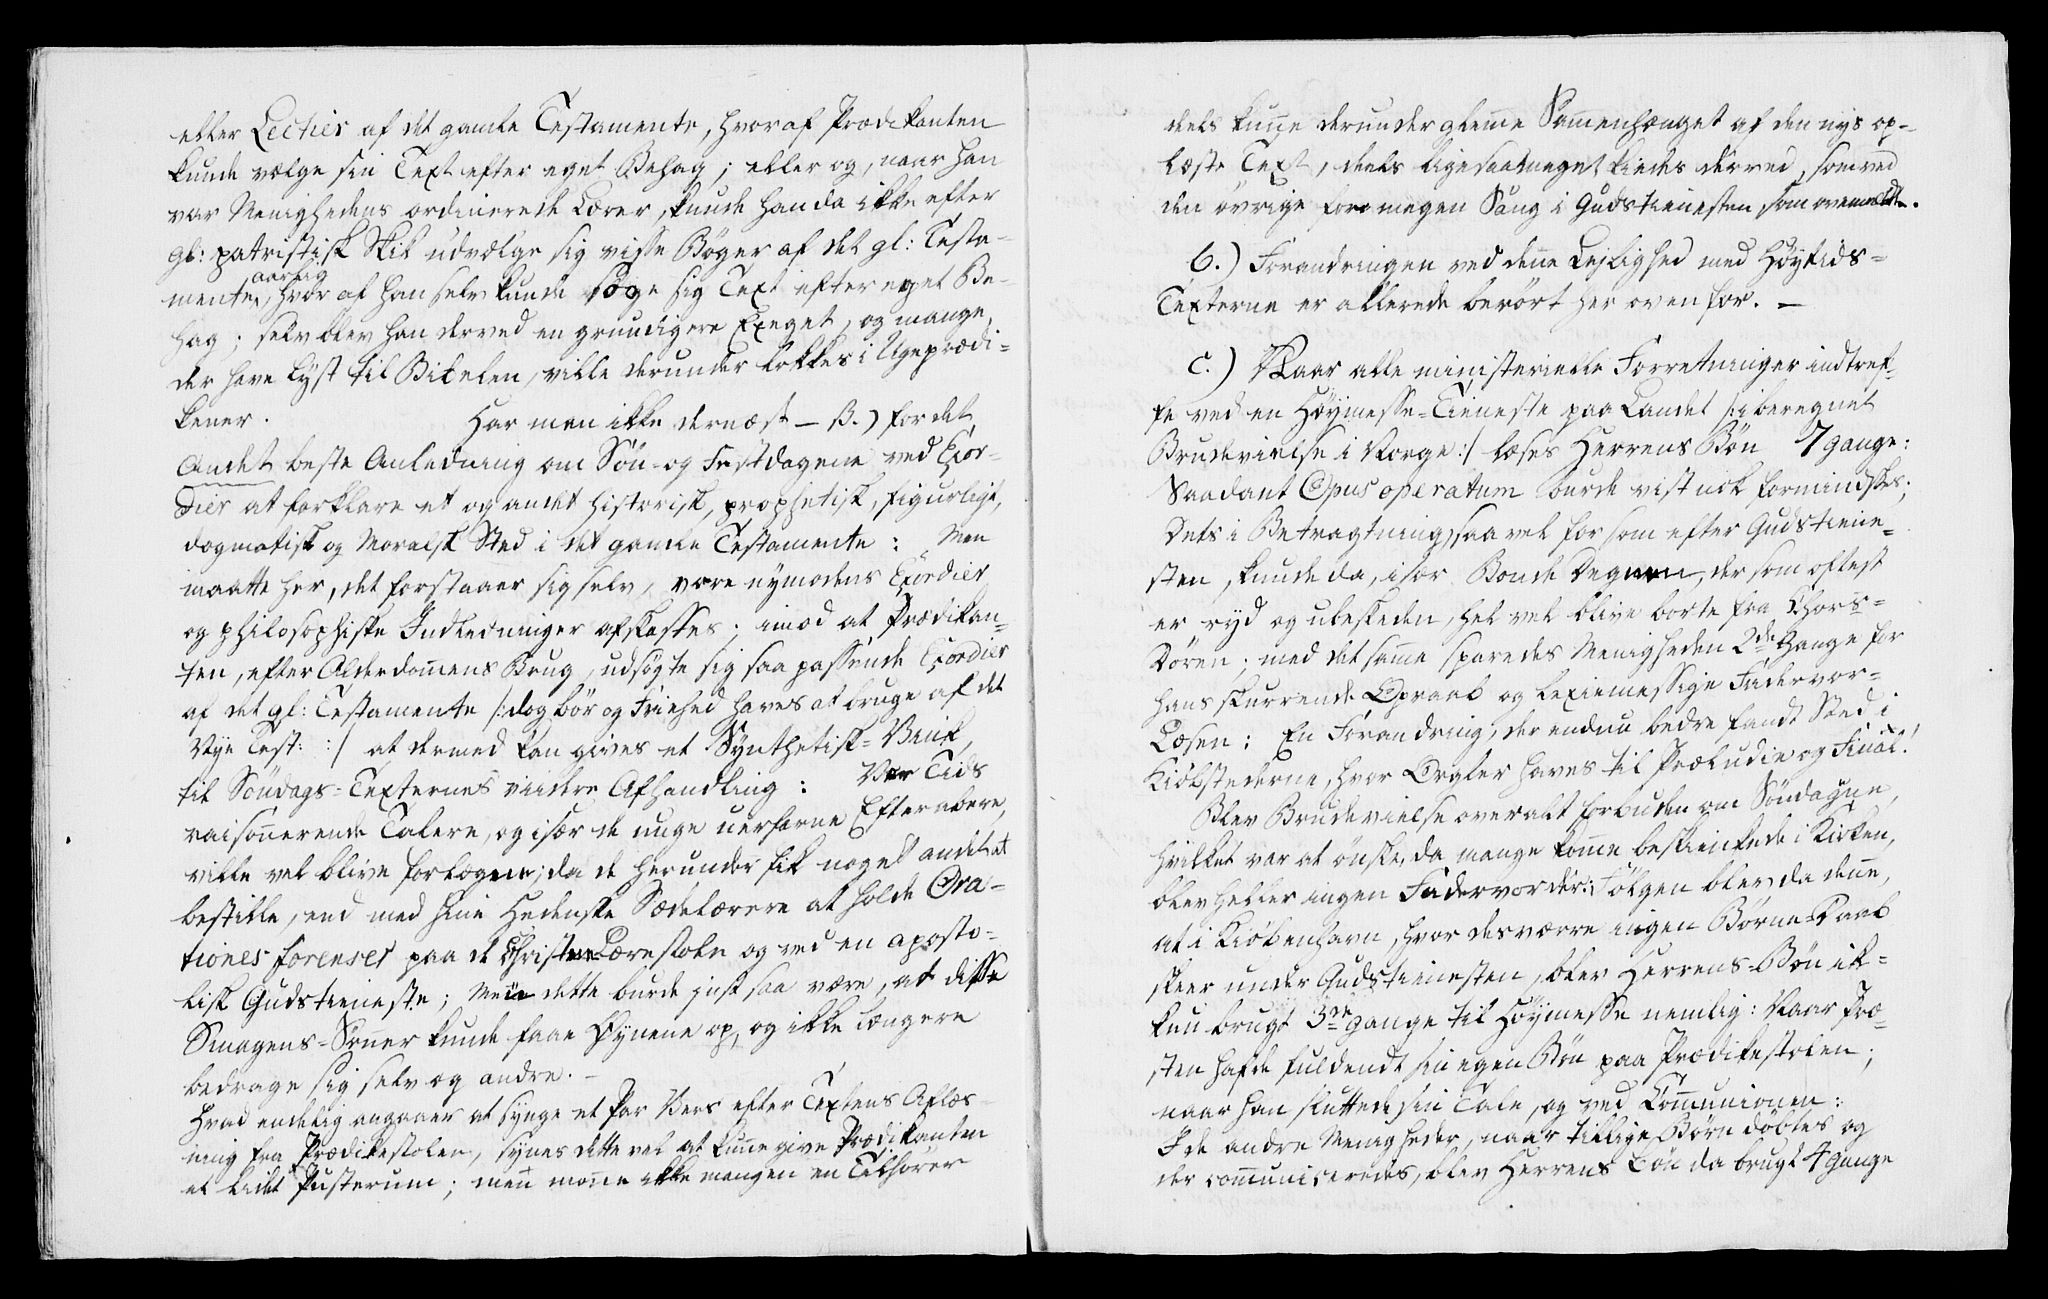 eller Lectier af det gamle Testamente, hvoraf Prædikanten
kunde vælge sin Text efter eget Behag; eller og, naar han
var Menighedens ordinerede Lærer, kunde han da ikke efter
gl: patristisk Skik udvælge sig visse Bøger af det gl: Testa-
aarlig
mente, hvor af han selv kunde søge sig Text efter eget Be-
hag; selv blev han derved en grundigere Exeget, og mange,
der have Lyst til Bibelen, ville derunder lokkes i Ugeprædi-
kener. Har man ikke dernæst — B.) for det
Andet beste Anledning om Søn- og Festdagene ved Exor-
dier at forklare et og andet historisk, prophetisk, figurligt,
dogmatisk og Moralsk Sted i det gamle Testamente: Men
maatte her, det forstaaer sig selv, være nymodens Exordier
og philosophiske Indledninger afskaffes; imod at Prædikan-
ten, efter Alderdomens Brug, udsøgte sig saa passende Exordier
af det gl: Testamente /: dog bør og Friehed haves at bruge af det
Nye Test: :/ at dermed kan gives et Synthetisk-Vink
til Søndags-Texternes viidere Afhandling: Vor Tids
raisonerende Talere, og især de unge uerfarne Efterabere,
ville vel blive forlegne; da de herunder fik noget andet at
bestille, end med hine Hedenske Sædelærere at holde Ora-
tiones forenses paa de Christnes Lærestole og ved en aposto-
lisk Gudstieneste; Men dette burde just saa være, at disse
Smagens-Sønner kunde faae Øynene op, og ikke længere
bedrage sig selv og andre. —
Hvad endelig angaaer at synge et Par Vers efter Textens Aflæs-
ning fra Prædikestolen, synes dette vel at kunne give Prædikanten
et lidet Pusterum; men monne ikke mangen en Tilhører
deels kunne derunder glemme Sammenhænget af den nys op-
læste Text, deels ligesaameget kiedes derved, som ved
den øvrige for megen Sang i Gudstienesten som ovenmeldt.
b.) Forandringen ved denne Lejlighed med Høytids-
Texterne er allerede berørt her oven for. —
c.) Naar alle ministerielle Forretninger indtref-
fe ved en Høymesse-Tieneste paa Landet /: iberegnet
Brudevielse i Norge :/ læses Herrens Bøn 7 gange:
Saadant Opus operatum burde vist nok formindskes;
Dets i Betragtning, saa vel for som efter Gudstiene-
sten, kunde da, især Bonde Degnen, der som oftest
er ryd og ubeskeden, hel vel blive borte fra Chors-
Døren; med det samme sparedes Menigheden 2de Gange for
hans skurrende Opraab og lexiemessige Fadervor-
Læsen: En Forandring, der endnu bedre fandt Sted i
Kiøbstederne, hvor Orgler haves til Præludie og Final!
Blev Brudevielse overalt forbuden om Søndagene,
hvilket var at ønske, da mange komme beskienkede i Kirken,
blev heller ingen Fadervor dér: Følgen blev da denne,
at i Kiøbenhavn, hvor desværre ingen Børne-Daab
skeer under Gudstienesten, blev Herrens-Bøn ik-
kun brugt 3de gange til Høymesse nemlig: Naar Præ-
sten hafde fuldendt sin egen Bøn paa Prædikestolen;
naar han sluttede sin Tale, og ved Communionen:
I de andre Menigheder, naar tillige Børn døbtes og
der communiceredes, blev Herrens Bøn da brugt 4 Gange